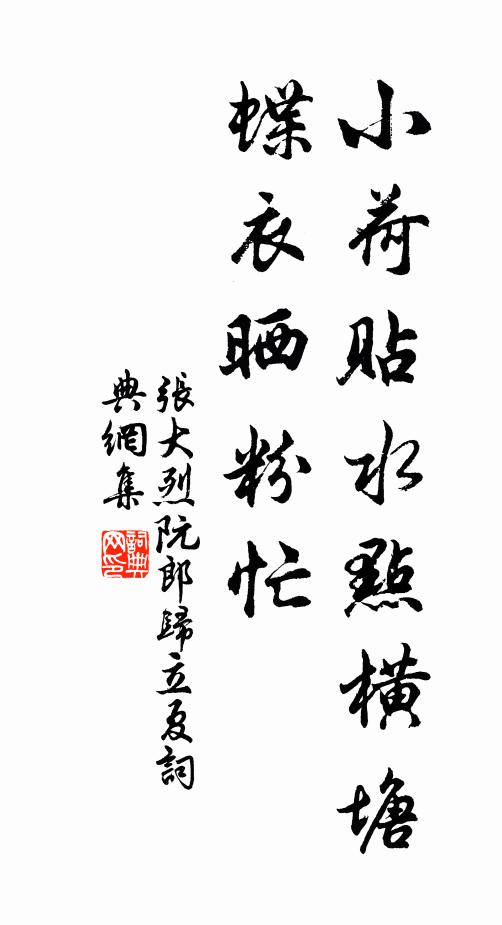 小荷貼水點橫塘
蝶衣晒粉忙
張大烈阮郎歸立夏詞
典網集
詞典
网印